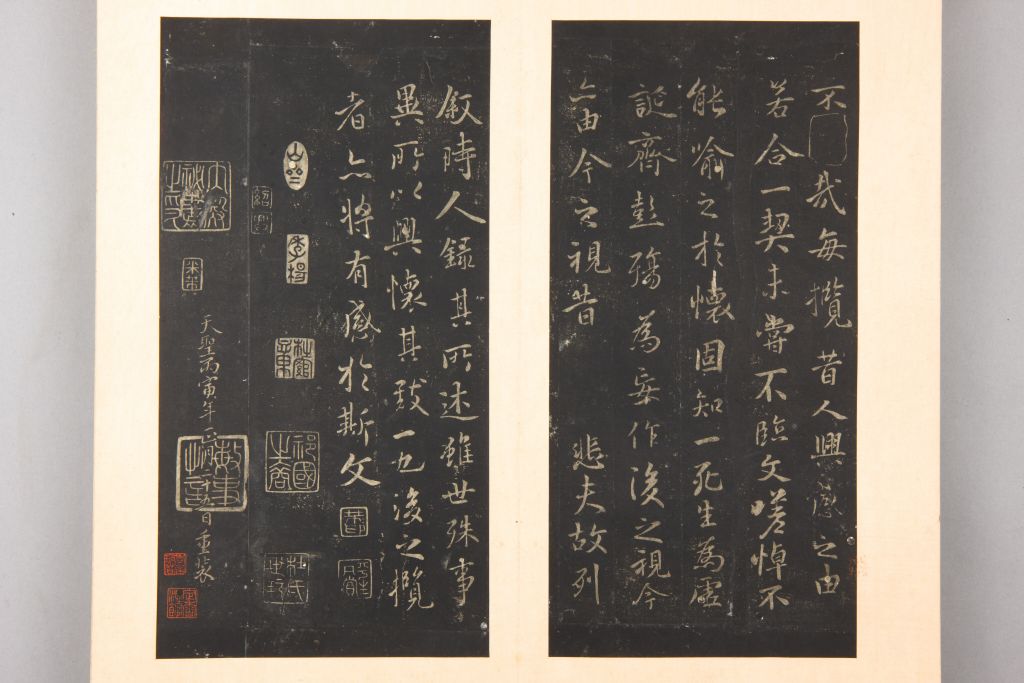 不哉每攬昔人興感之由
若合一契未嘗不臨文嗟悼不
能喻之於懷固知一死生為虛
誕齊彭殤為妄作後之視今
亦由今之視昔 悲夫故列
敘時人錄其所述雖世殊事
異所以興懷其致一也後之攬
者亦將有感於斯文
紹彭
天聖丙寅年正 十五日重裝